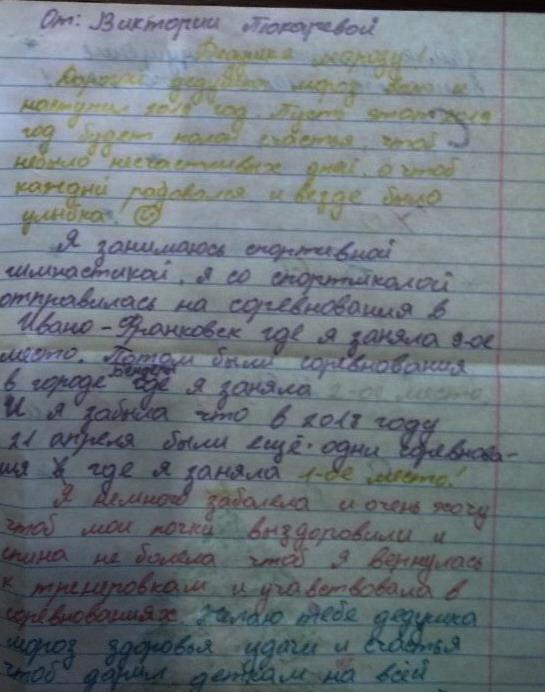 От: Виктории Токаревой
Дедушке морозу!
Дорогой дедушка мороз вот и
наступил 2019 год. Пусть этот 2019
год будет полон счастья, чтоб
небыло несчастливых дней, а чтоб
каждый радовался и везде была
улыбка
Я занимаюсь спортивной
гимнастикой, я со спортшколой
отправилась на соревнования в
Ивано-Франковск где я заняла 9-ое
место. Потом были соревнования
в городе Бендеры где я заняла 2-ое место
И я забыла что в 2018 году
21 апреля были ещё одни соревнова-
ия где я заняла 1-ое место!
Я немного заболела и очень хочу
чтоб мои почки выздоровили и
спина не болела чтоб я вернулась
к тненеровкам и учавствовала в
соревнованиях. Желаю тебе дедушка
мороз здоровья удачи и счастья
чтоб дарил деткам на всей